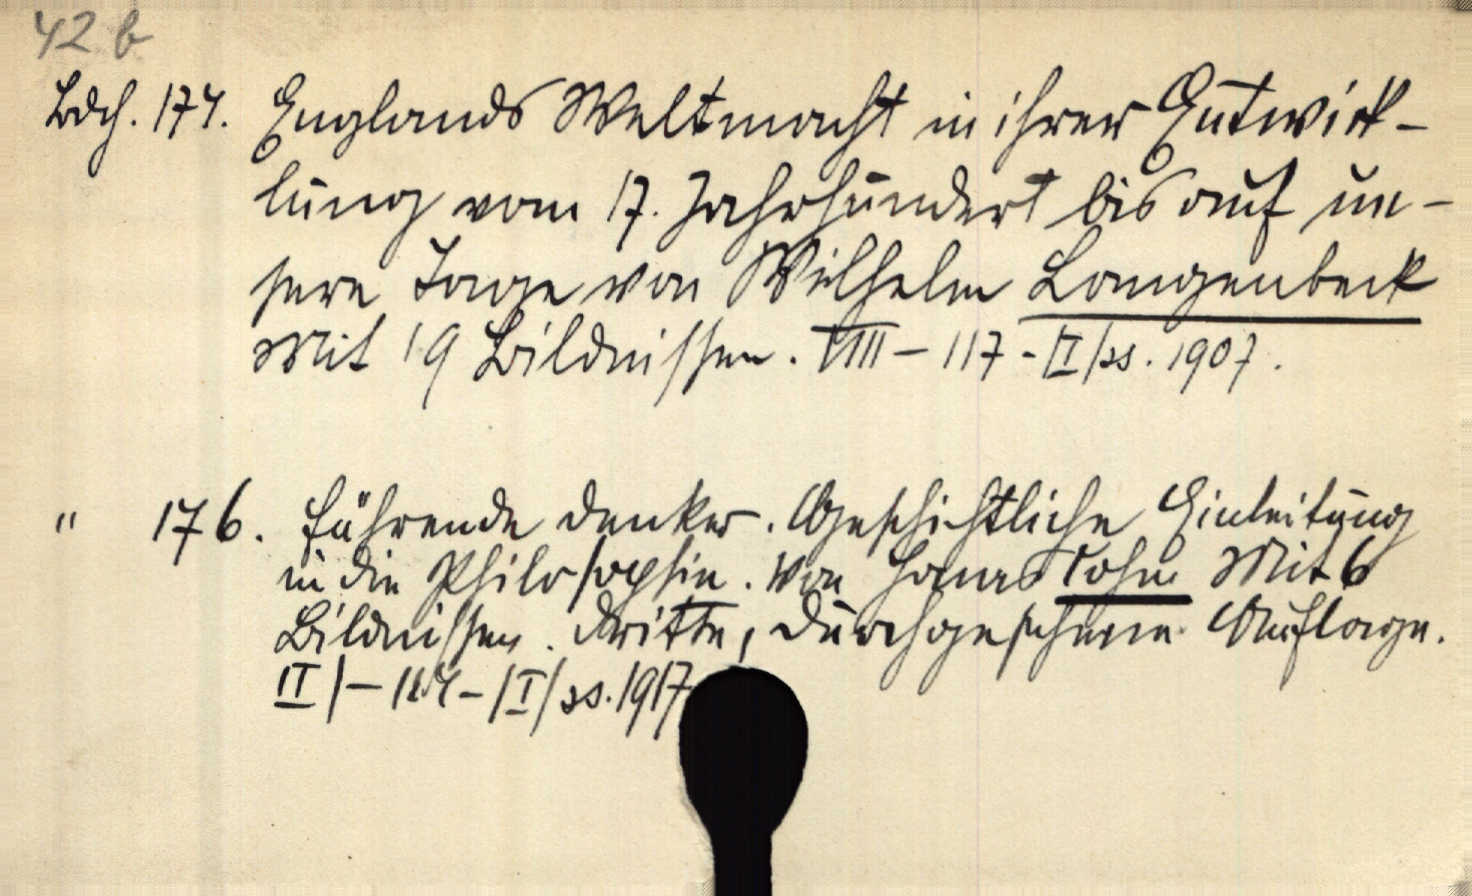 42 b
Bdch. 174. Englands Weltmacht in ihrer Entwick-
lung vom 17. Jahrhundert bis auf un-
sere Tage von Wilhelm Langenbeck
Mit 19 Bildnissen. VIII – 117 - II/ss. 1907.
" 176. Führende Denker. Geschichtliche Einleitung
in die Philosophie. Von Jonas Cohn Mit 6
Bildnissen. Dritte, durchgesehene Auflage.
II/ – – /I/ ss. 1917